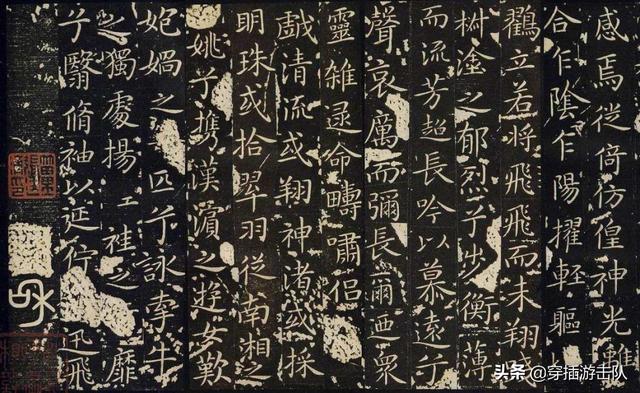 感焉徙倚仿偟神光離
合乍陰乍陽擢輕軀
鸖立若將飛飛而未翔
椒塗之郁烈兮步衡薄
而流芳超長吟以慕遠兮
聲哀厲而彌長爾迺衆
靈雜遝命疇嘯侶
戲清流或翔神渚或採
明珠或拾翠羽從南湘之
姚兮攜漢濱之遊女歎
媧之匹兮詠牽牛
之獨處揚袿之靡
兮翳脩袖以延佇迅飛
头条 @穿插游击队